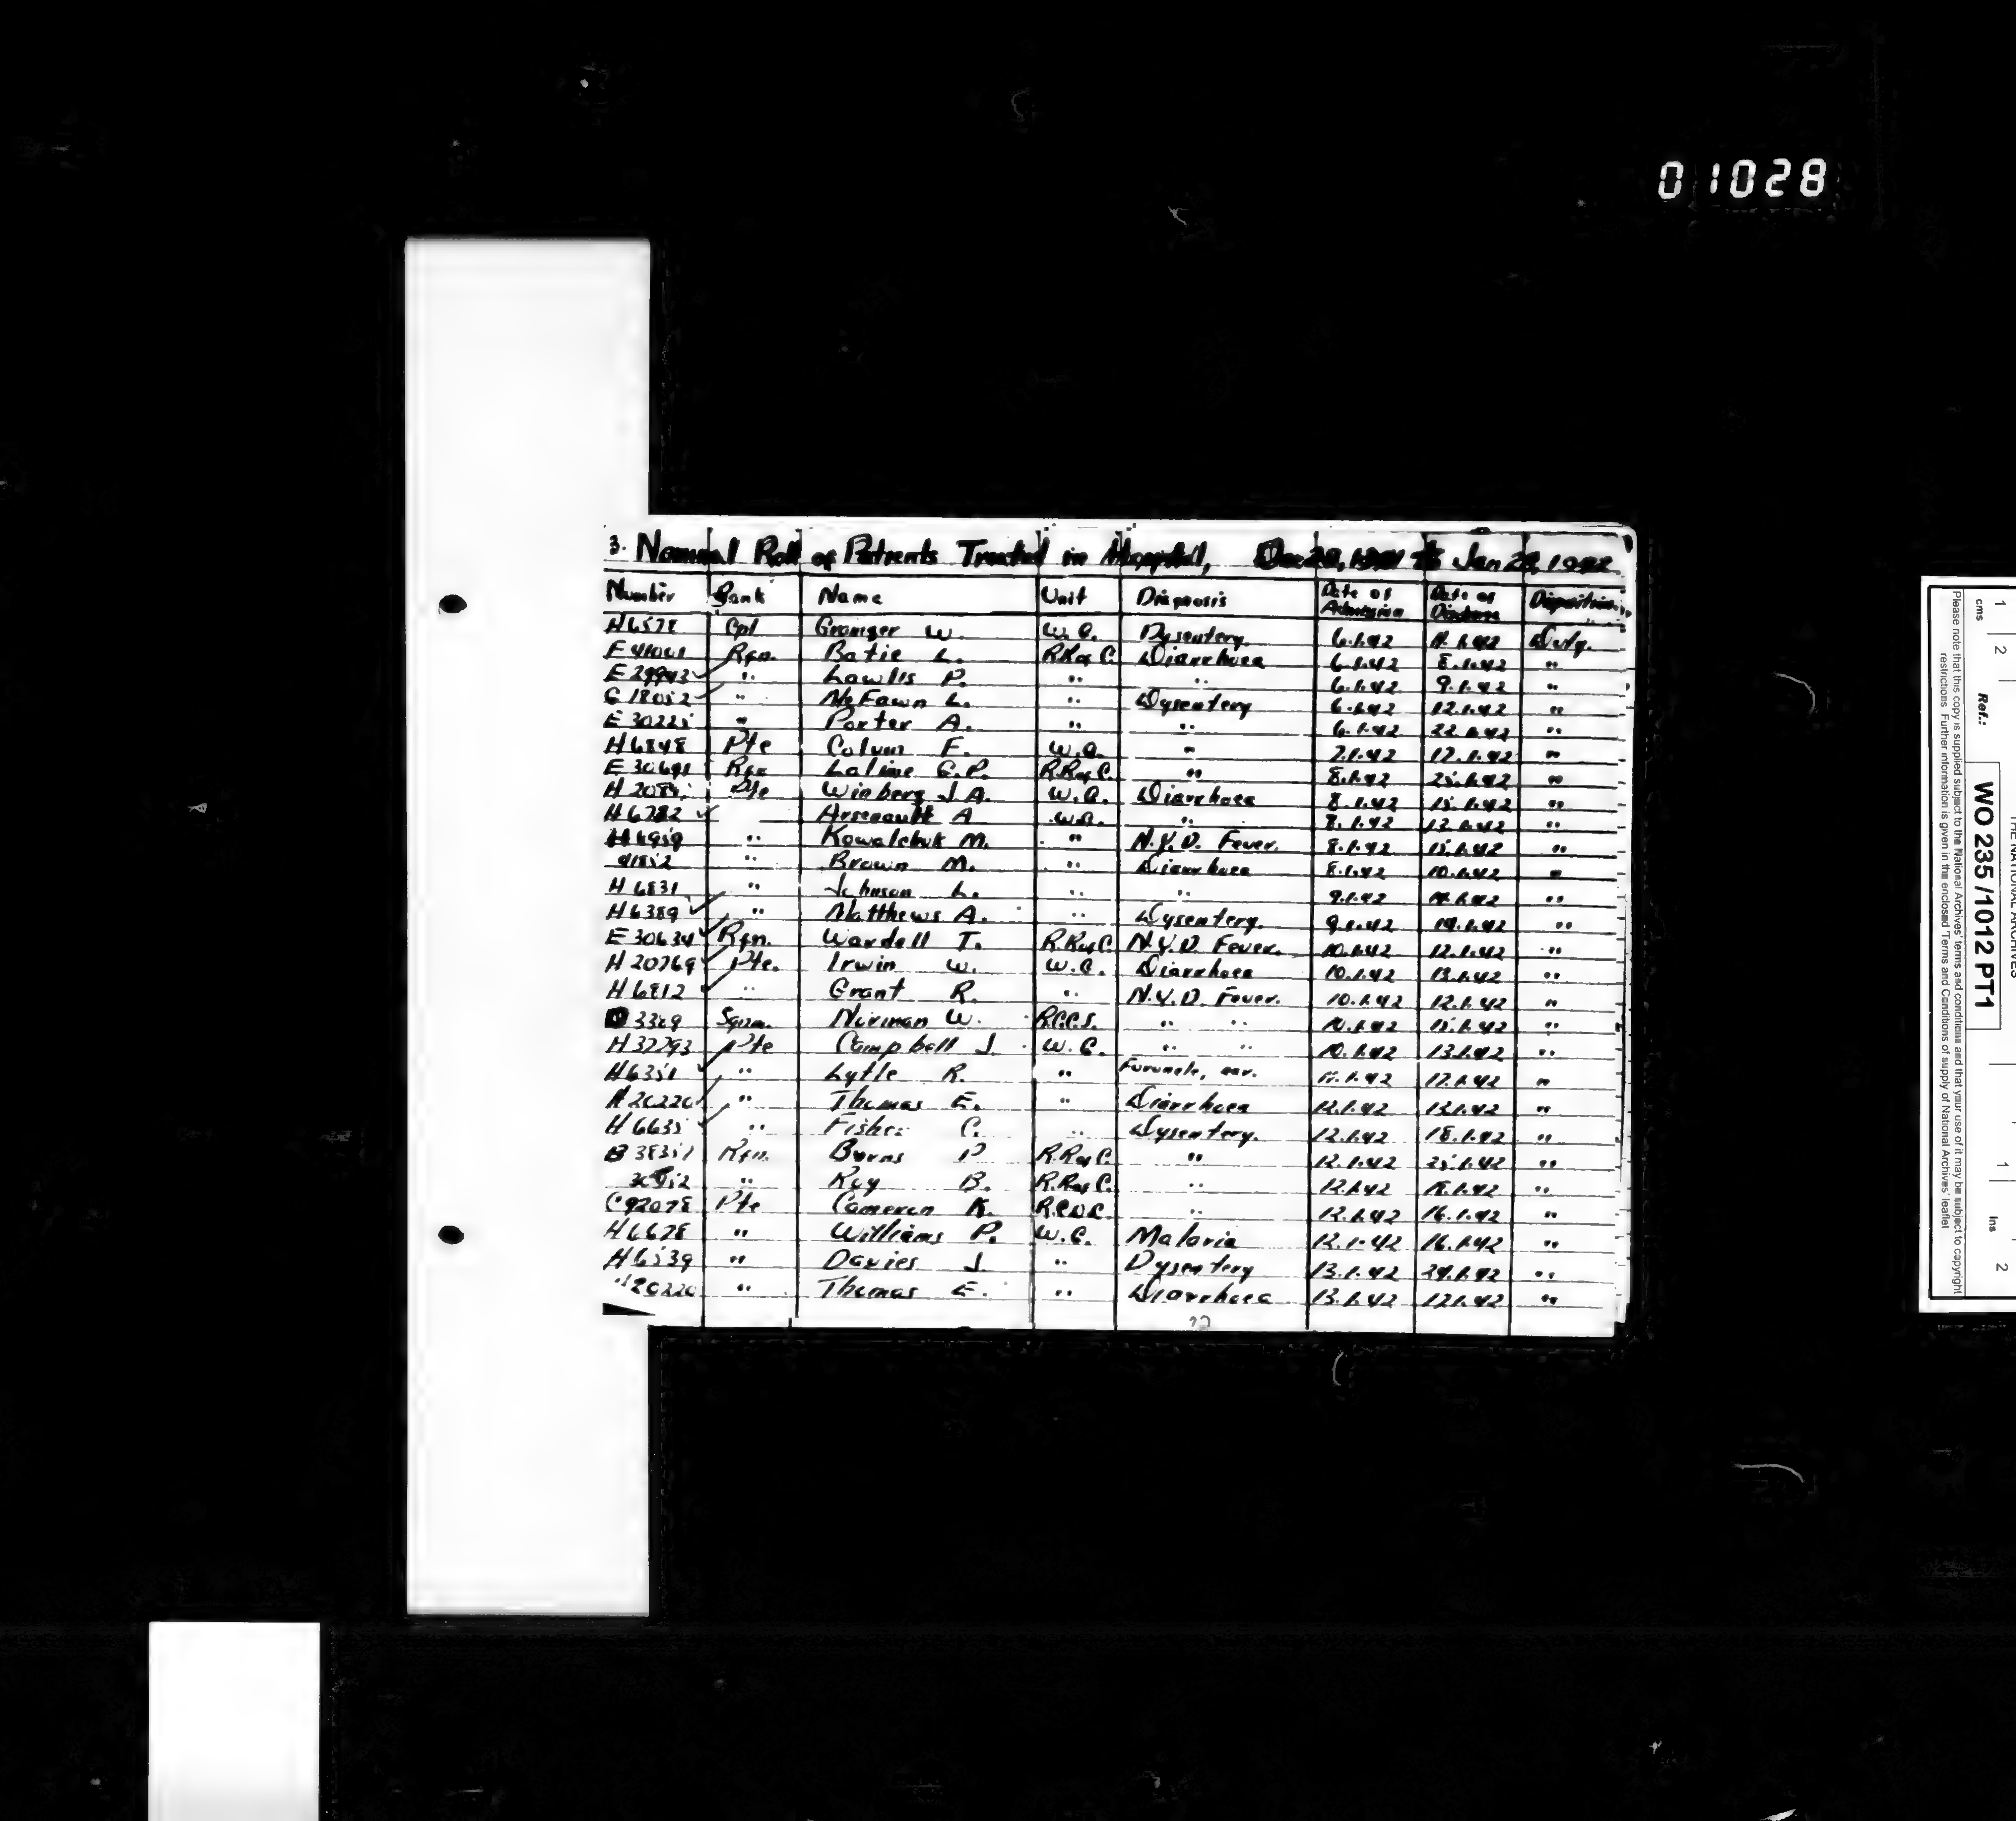 01028
3. Nominal Roll of Patients Treated in Hospital, Dec 29, 1941 to Jan 29, 1942
Number Rank Name Unit Diagnosis Date of Admission Date of Discharge Disposition
H6578 Cpl Granger W. W.G. Dysentery 6.1.42 1.42 Duty.
E Rfn. Batie L. R.R of C. Diarrhoea 6.1.42 8.1.42 "
E29943 " Lawlis P. " " 6.1.42 9.1.42 "
G18052 " McFawn L. " Dysentery 6.1.42 12.1.42 "
E30225 " Porter A. " " 6.1.42 22.1.42 "
H6848 Pte Colvin F. W.G. " 7.1.42 17.1.42 "
E30691 Rfn Laline G.P. R.R of C. " 8.1.42 25.1.42 "
H Pte Winberg J.A. W.G. Diarrhoea 8.1.42 15.1.42 "
H Arsenault A W.G. " 8.1.42 13.1.42 "
H6959 " Kowalchuk M. " N.Y.D. Fever. 8.1.42 15.1.42 "
" Brown M. Diarrhoea 8.1.42 10.1.42 "
H6831 " Johnson L. " " 9.1.42 1.42 "
H6389 " Matthews A. " Dysentery. 9.1.42 19.1.42 "
E30634 Rfn. Wardell T. R.R of C. N.Y.D. Fever. 10.1.42 12.1.42 "
H20769 Pte. Irwin W. W.G. Diarrhoea 10.1.42 13.1.42 "
H6812 " Grant R. " N.Y.D. Fever. 10.1.42 12.1.42 "
3389 Sgmn. Norman W. R.C.C.S. " " 10.1.42 15.1.42 "
H37293 Pte Campbell J. W.G. " " 10.1.42 13.1.42 "
H6351 " Lytle R. " Furuncle, ear. 11.1.42 17.1.42 "
H20220 " Thomas E. " Diarrhoea 12.1.42 13.1.42 "
H6635 " Fisher C. " Dysentery. 12.1.42 18.1.42 "
B38357 Rfn. Burns P R.R of C. " 12.1.42 25.1.42 "
" Roy B. R.R of C. " 12.1.42 18.1.42 "
C92078 Pte Cameron K. R.C.O.C. " 12.1.42 16.1.42 "
H6678 " Williams P. W.G. Malaria 12.1.42 16.1.42 "
H6539 " Davies J. " Dysentery 13.1.42 29.1.42 "
H20220 " Thomas E. " Diarrhoea 13.1.42 17.1.42 "
THE NATIONAL ARCHIVES
Ref.: WO 235/1012 PT1
cms 1 2 1 Ins 2
Please note that this copy is supplied subject to the National Archives' terms and conditions and that your use of it may be subject to copyright
restrictions. Further information is given in the enclosed 'Terms and Conditions of supply of National Archives' leaflet